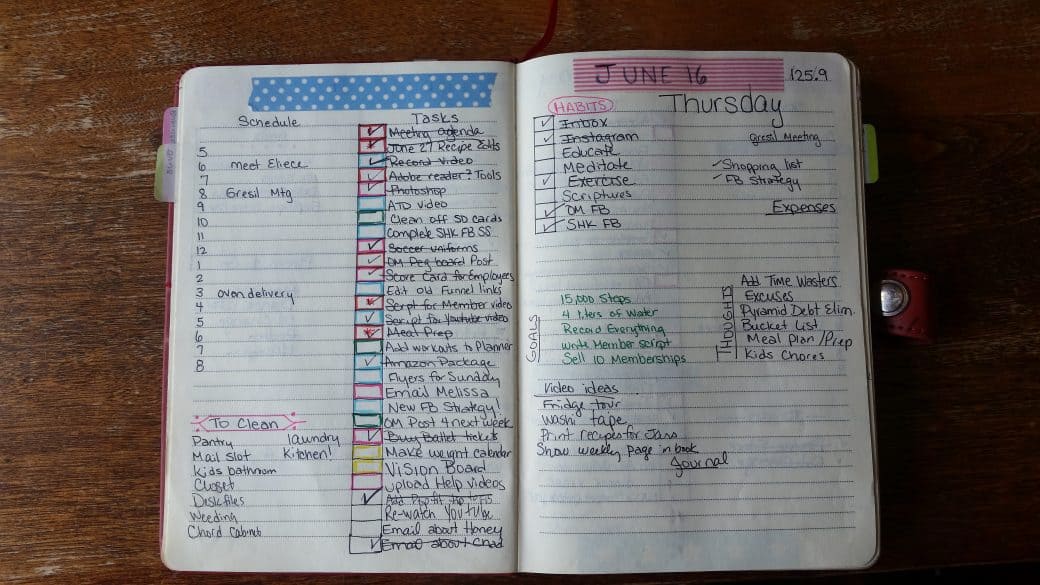 Schedule
5
6 meet Eliece
7
8 Gresil Mtg
9
10
11
12
1
2
3 oven delivery
4
5
6
7
8
To Clean
Pantry laundry
Mail Slot Kitchen!
Kids bathroom
Closet
Desk files
Weeding
Chord Cabinet
Tasks
Meeting agenda
June 27 Recipe Edits
Record video
Adobe reader? Tools
Photoshop
ATD video
Clean off SD cards
Complete SHK FB SS
Soccer uniforms
OM Peg board Post
Score Card for Employees
Edit old Funnel links
Script for Member video
Script for Youtube video
Meal Prep
Add workouts to Planner
Amazon Package
Flyers for Sunday
Email Melissa
New FB Strategy!
OM Post 4 next week
Buy Ballet tickets
Make weight calendar
Vision Board
Upload Help videos
Add Profit
Re-watch YouTube
Email about Honey
Email about Chad
JUNE 16 125.9
Thursday
HABITS
Inbox
Instagram
Educate
Meditate
Exercise
Scriptures
OM FB
SHK FB
Gresil Meeting
Shopping list
FB Strategy
Expenses
GOALS
15,000 Steps
4 liters of Water
Record Everything
write Member script
Sell 10 Memberships
THOUGHTS
Add Time Wasters
Excuses
Pyramid Debt Elim.
Bucket List
Meal Plan/Prep
Kids Chores
Video ideas
Fridge tour
Washi tape
Print recipes for Jars
Show weekly page in book
Journal